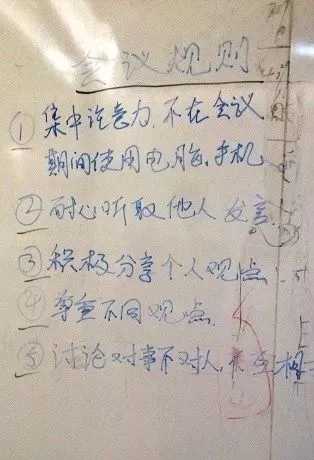 会议规则
① 集中注意力,不在会议
期间使用电脑、手机
② 耐心听取他人发言.
③ 积极分享个人观点
④ 尊重不同观点.
⑤ 讨论对事不对人,